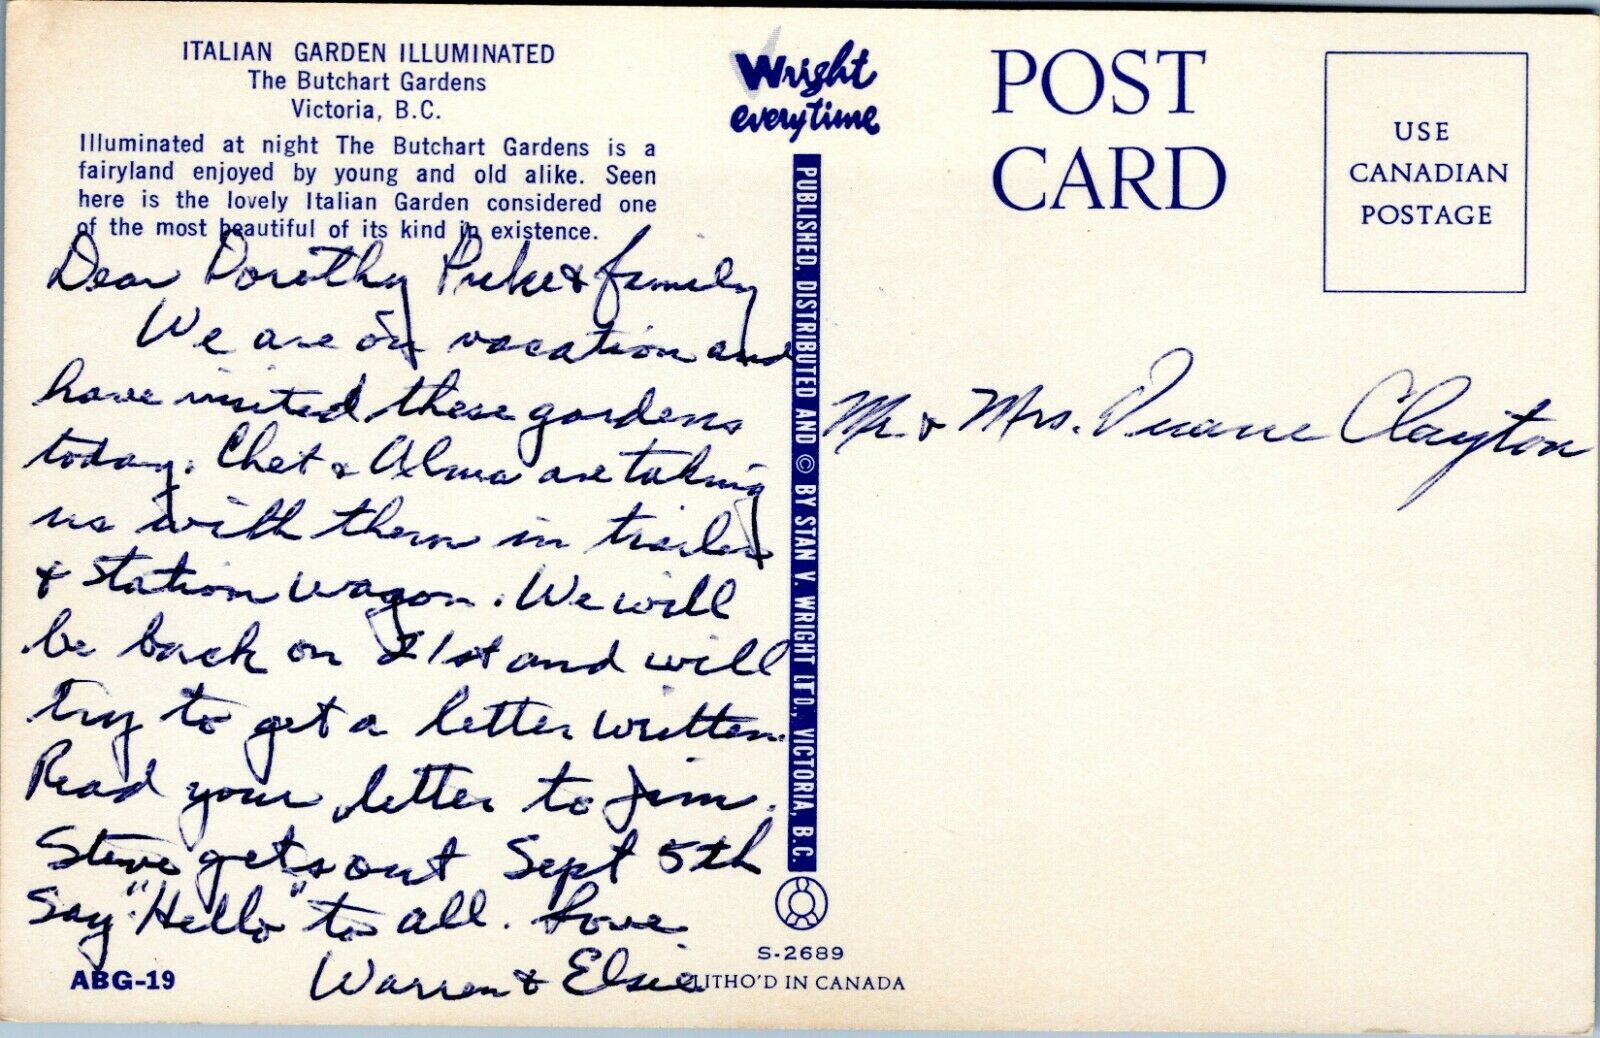 ITALIAN GARDEN ILLUMINATED
The Butchart Gardens
Victoria, B.C.
Illuminated at night The Butchart Gardens is a
fairyland enjoyed by young and old alike. Seen
here is the lovely Italian Garden considered one
of the most beautiful of its kind in existence.
Dear Dorothy & family
We are on vacation and
have visited these gardens
today. Chet & Alma are taking
us with them in trailer
& station wagon. We will
be back on 21st and will
try to get a letter written.
Read your letter to Jim.
Steve gets out Sept 5th
Say "Hello" to all. Love
Warren & Elsie
ABG-19
Wright
everytime
PUBLISHED, DISTRIBUTED AND © BY STAN V. WRIGHT LTD., VICTORIA, B.C.
S-2689
LITHO'D IN CANADA
POST
CARD
USE
CANADIAN
POSTAGE
Mr. & Mrs. Duane Clayton